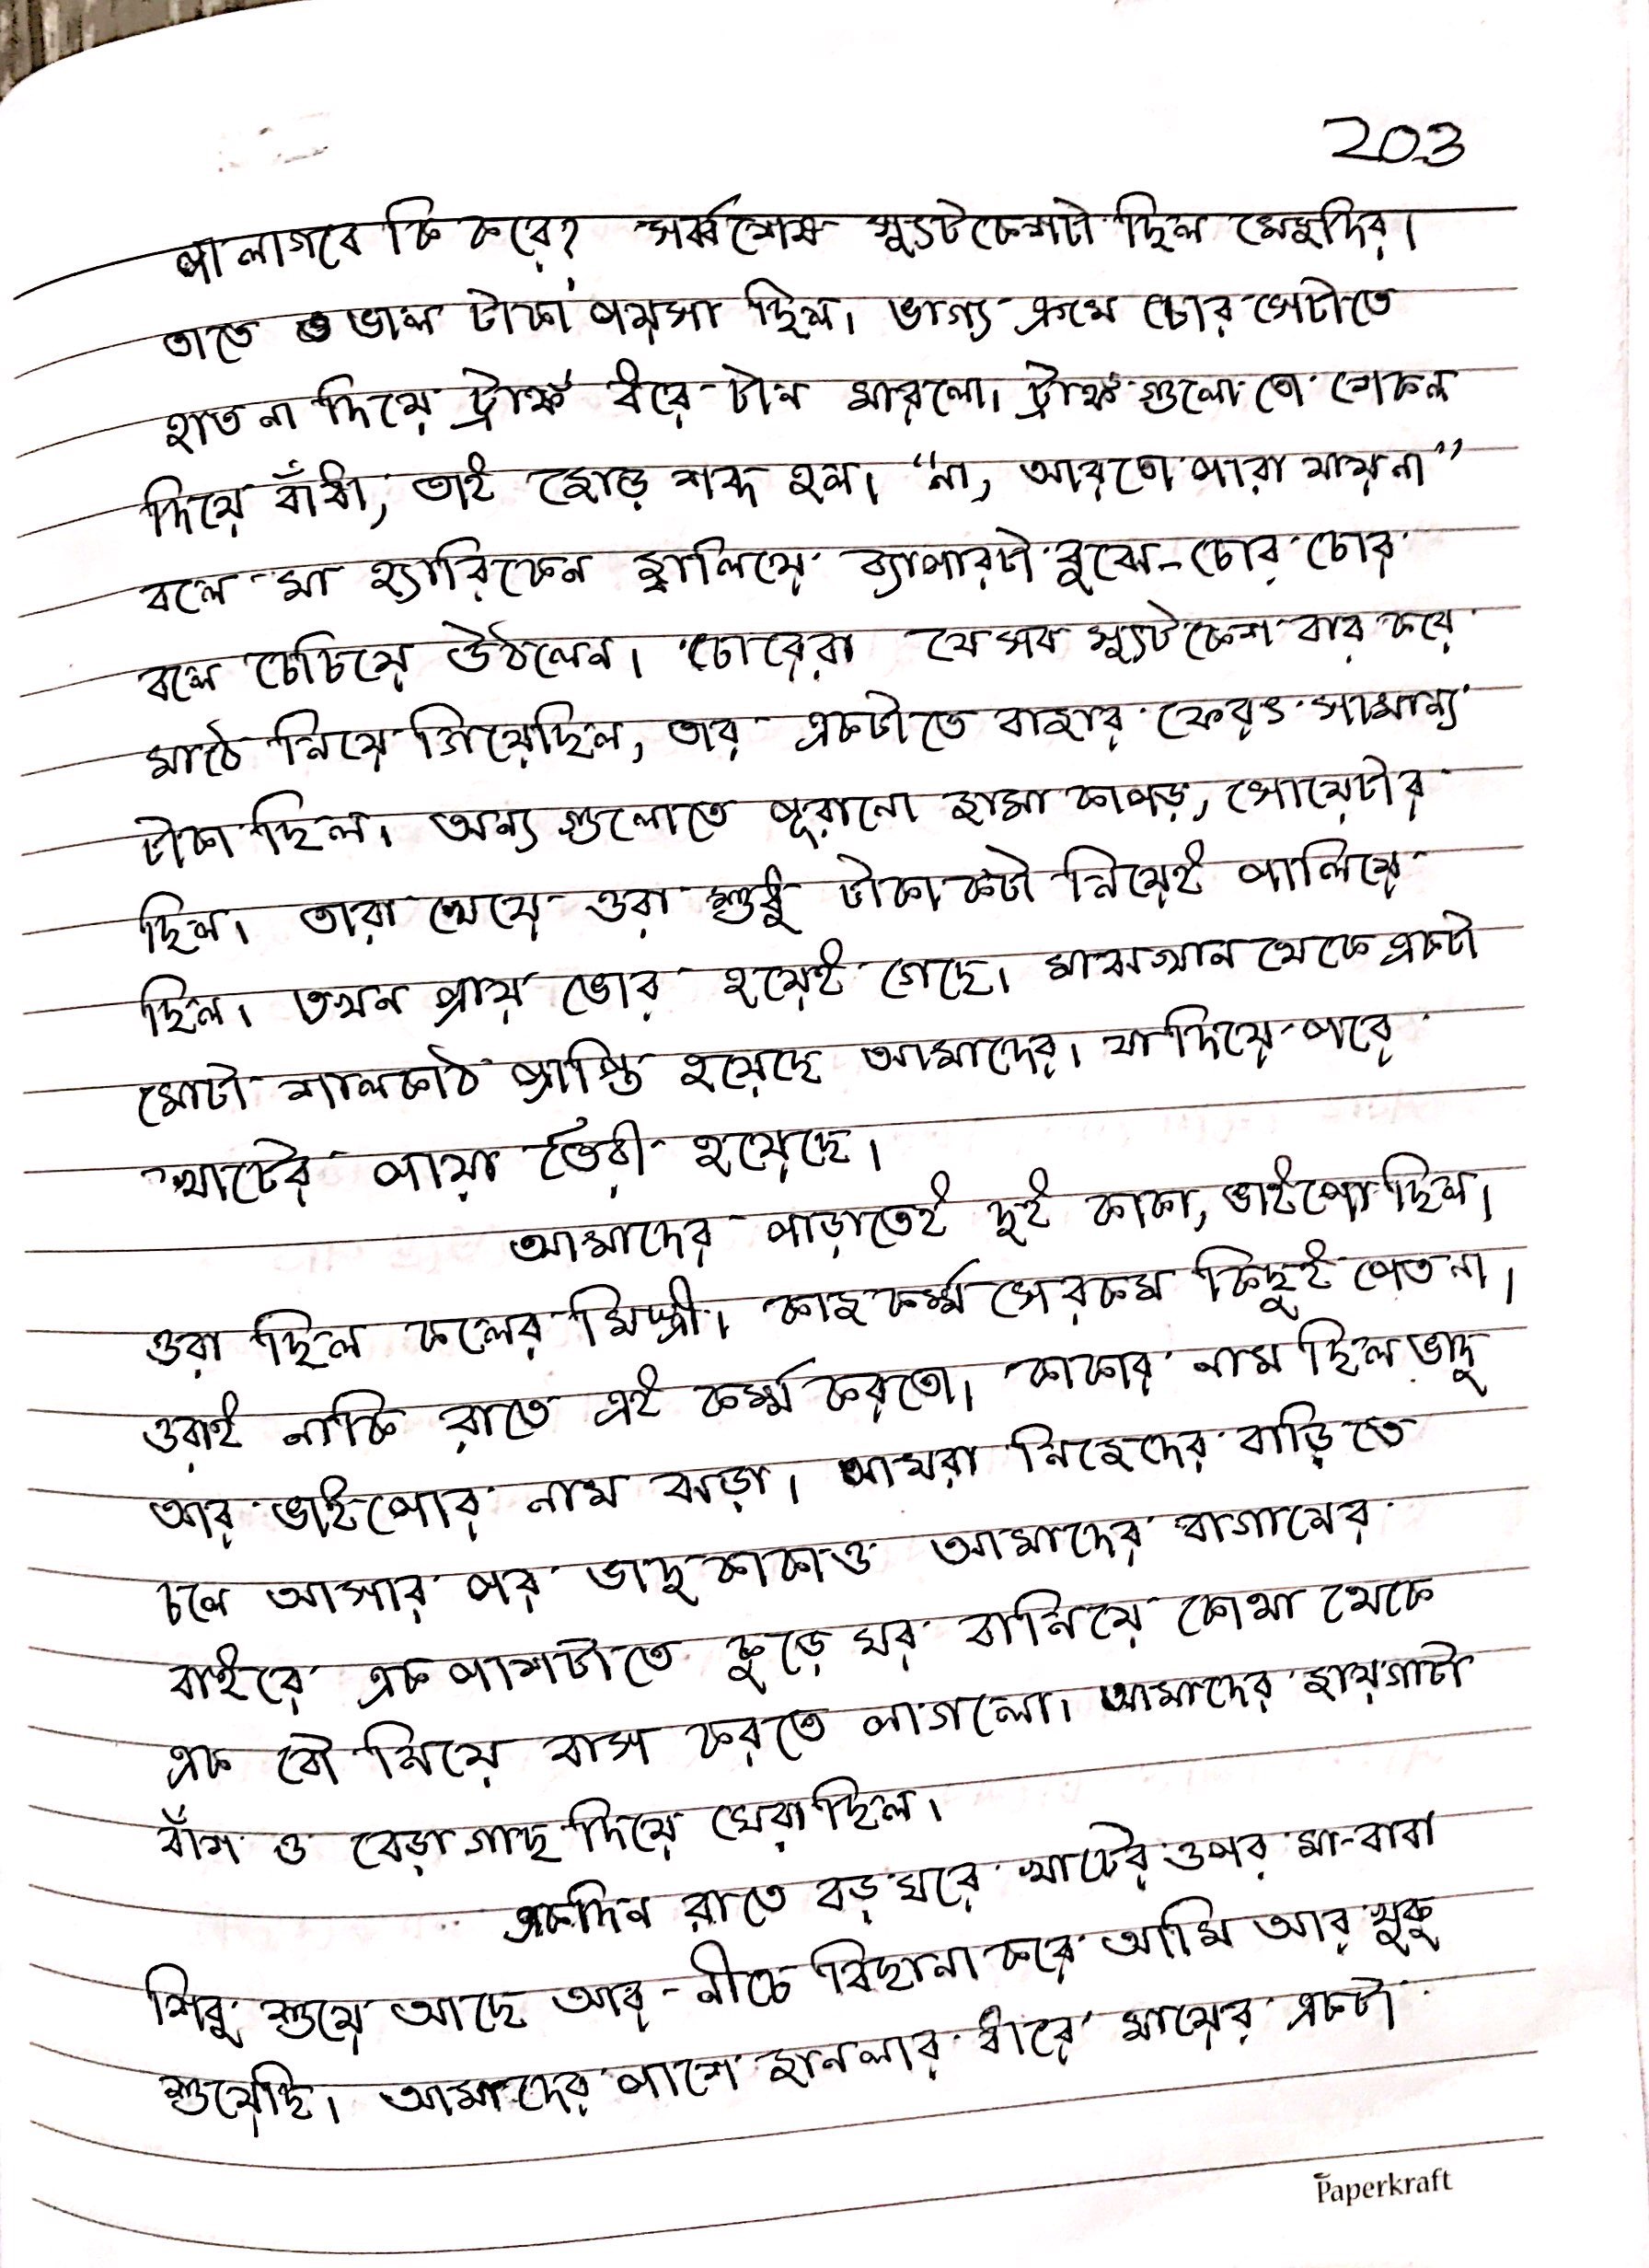 203
পালাগবে কি করে? সর্ব্বশেষ স্যুটকেশটা ছিল মেহুদির।
তাতে ভাল টাকা পয়সা ছিল। ভাগ্য ক্রমে চোর সেটাতে
হাত না দিয়ে ট্রাঙ্ক ধরে টান মারলো। ট্রাঙ্ক গুলো তো শেকল
দিয়ে বাঁধা, তাই জোড় শব্দ হল। “না, আরতো পারা যায় না”
বলে মা হ্যারিকেন জ্বালিয়ে ব্যাপারটা বুঝে - চোর চোর
বলে চেচিয়ে উঠলেন। চোরেরা যে সব স্যুটকেশ বার করে
মাঠে নিয়ে গিয়েছিল, তার একটাতে বাজার ফেরৎ সামান্য
টাকা ছিল। অন্য গুলোতে পুরানো জামা কাপড়, সোয়েটার
ছিল। তারা খেয়ে ওরা শুধু টাকা কটা নিয়েই পালিয়ে
ছিল। তখন প্রায় ভোর হয়েই গেছে। মাঝখান থেকে একটা
মোটা শালকাঠ প্রাপ্তি হয়েছে আমাদের। যা দিয়ে পরে
খাটের পায়া তৈরী হয়েছে।
আমাদের পাড়াতেই দুই কাকা, ভাইপো ছিল।
ওরা ছিল কলের মিস্ত্রী। কাজকর্ম্ম সেরকম কিছুই পেত না।
ওরাই নাকি রাতে এই কর্ম্ম করতো। কাকার নাম ছিল ভাদু
আর ভাইপোর নাম ঝড়া। আমরা নিজেদের বাড়িতে
চলে আসার পর ভাদু কাকাও আমাদের বাগানের
বাইরে এক পাশটাতে কুড়ে ঘর বানিয়ে কোথা থেকে
এক বৌ নিয়ে বাস করতে লাগলো। আমাদের জায়গাটা
বাঁশ ও বেড়া গাছ দিয়ে ঘেরা ছিল।
একদিন রাতে বড় ঘরে খাটের ওপর মা-বাবা
শিবু শুয়ে আছে আর - নীচে বিছানা করে আমি আর খুকু
শুয়েছি। আমাদের পাশে জানলার ধারে মায়ের একটা
Paperkraft